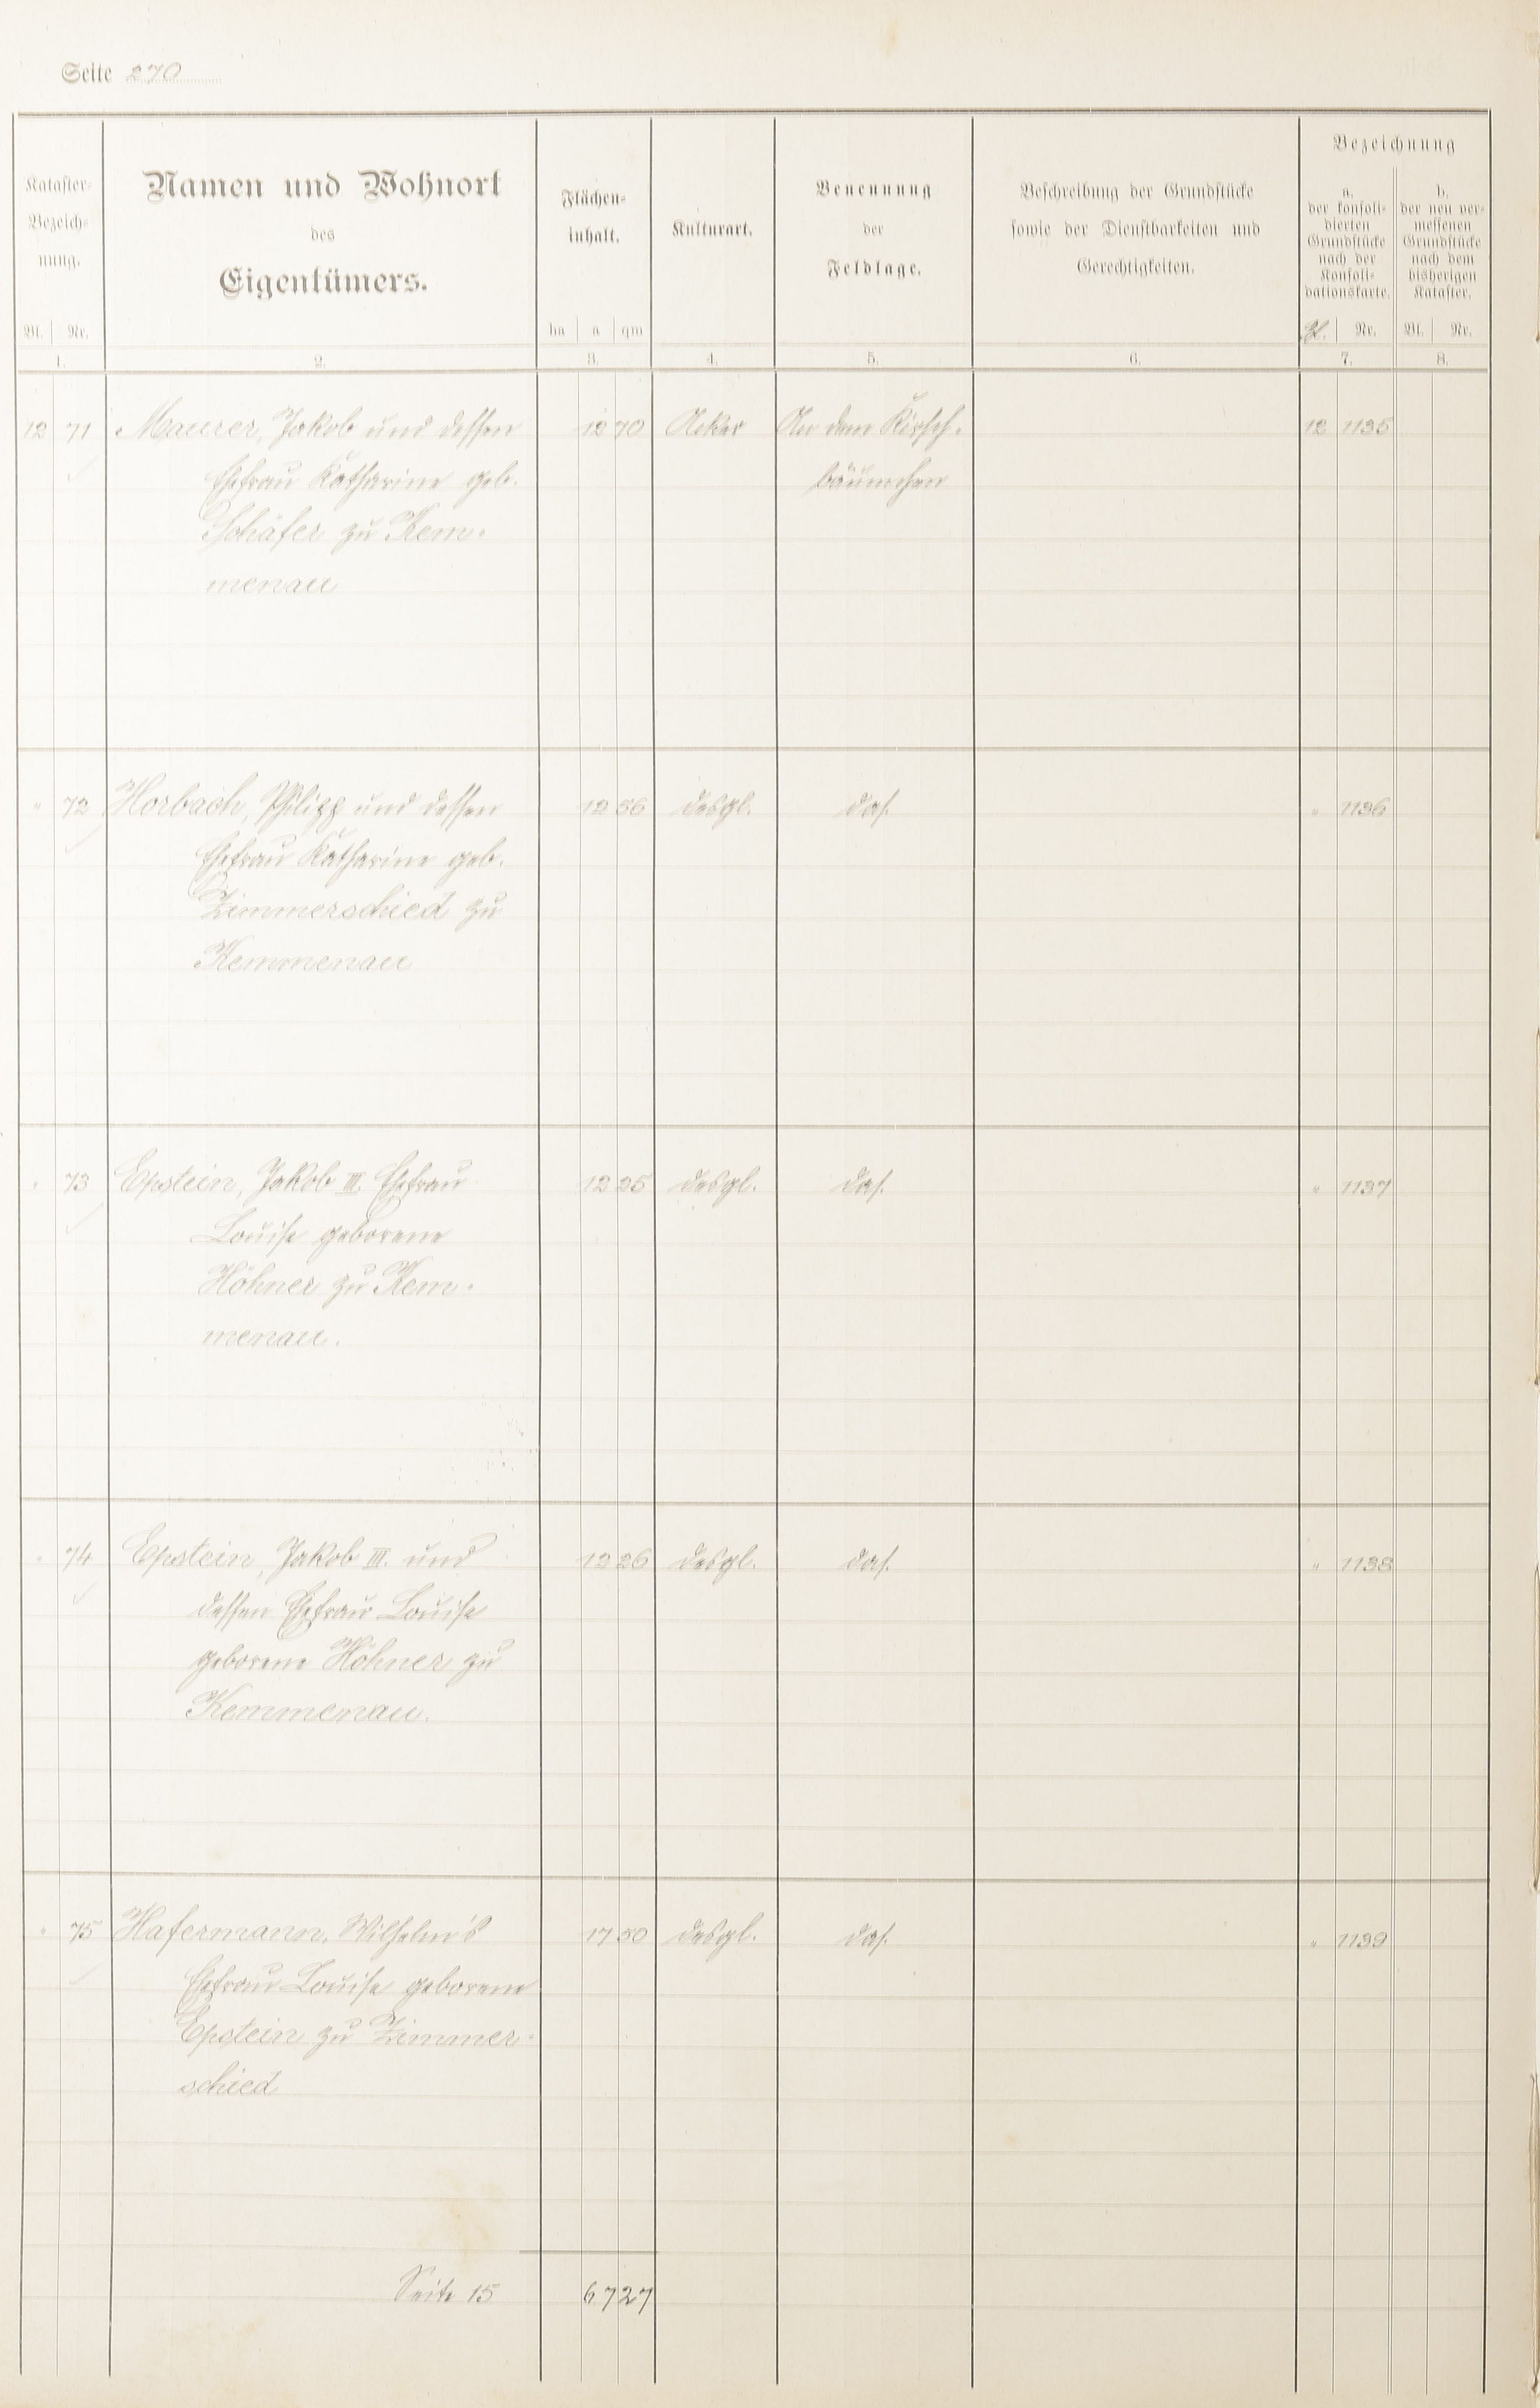 Seite 270
Kataster-
Bezeich-
nung.
Bl. Nr.
1.
Namen und Wohnort
des
Eigentümers.
2.
Flächen-
inhalt.
ha a qm
3.
Kulturart.
4.
Benennung
der
Feldlage.
5.
Beschreibung der Grundstücke
sowie der Dienstbarkeiten und
Gerechtigkeiten.
6.
Bezeichnung
a.
der konsoli-
dierten
Grundstücke
nach der
Konsoli-
dationskarte.
Bl. Nr.
7.
b.
der neu ver-
messenen
Grundstücke
nach dem
bisherigen
Kataster.
Bl. Nr.
8.
12 71 Maurer, Jakob und dessen 12 70 Acker An dem Kirsch- 12 1135
Ehefrau Katharine geb. bäumchen
Schäfer zu Kem-
menau
" 72 Horbach, Philipp und dessen 12 56 desgl. das. " 1136
Ehefrau Katharine geb.
Zimmerschied zu
Kemmenau
" 73 Epstein, Jakob III. Ehefrau 12 25 desgl. das. " 1137
Louise geborene
Höhner zu Kem-
menau.
" 74 Epstein, Jakob III. und 12 26 desgl. das. " 1138
dessen Ehefrau Louise
geborene Höhner zu
Kemmenau.
" 75 Hafermann, Wilhelm's 17 50 desgl. das. " 1139
Ehefrau Louise geborene
Epstein zu Zimmer-
schied
Seite 15 67 27